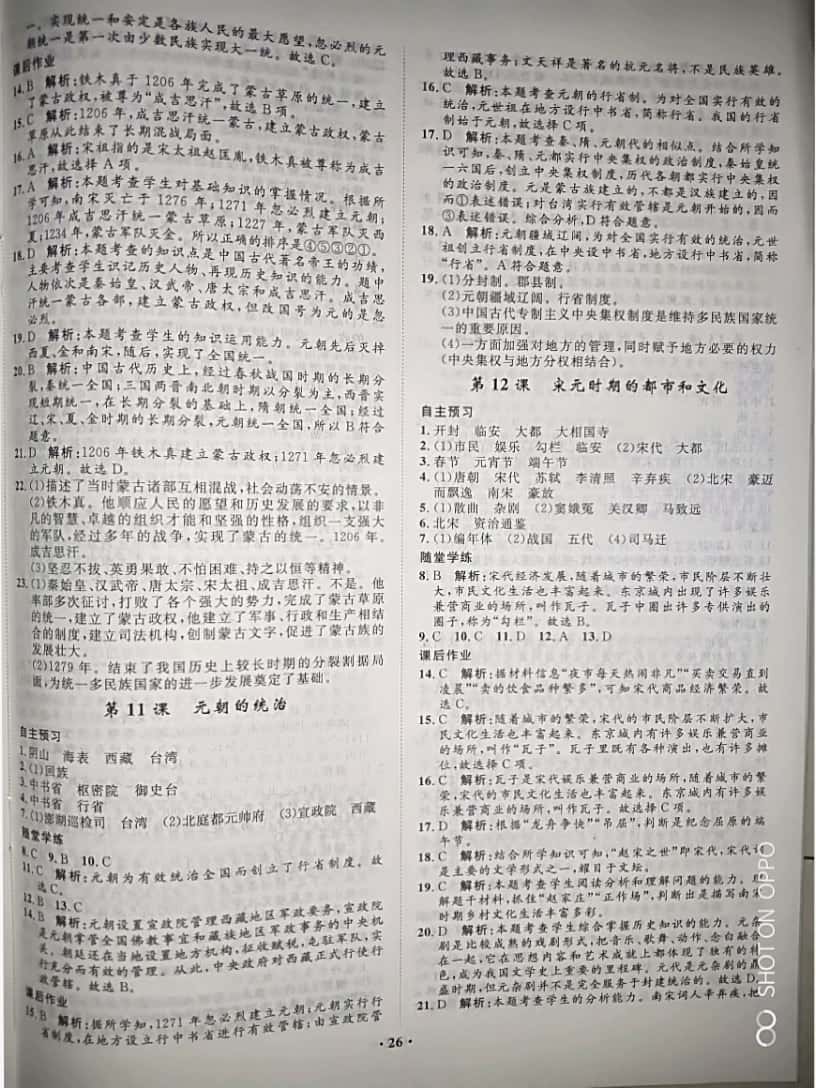 一、实现统一和安定是各族人民的最大愿望,忽必烈的元
朝统一是第一次由少数民族实现大一统。故选C。
课后作业
14.B 解析:铁木真于1206年完成了蒙古草原的统一,建立
了蒙古政权,被尊为“成吉思汗”,故选B项。
15.C 解析:1206年,成吉思汗统一蒙古,建立蒙古政权,蒙古
草原从此结束了长期混战局面。
16.A 解析:宋祖指的是宋太祖赵匡胤,铁木真被尊称为成吉
思汗,故选择A项。
17.A 解析:本题考查学生对基础知识的掌握情况。根据所
学可知,南宋灭亡于1276年;1271年忽必烈建立元朝;
1206年成吉思汗统一蒙古草原;1227年,蒙古军队灭西
夏;1234年,蒙古军队灭金。所以正确的排序是④⑤③②①。
18.D 解析:本题考查的知识点是中国古代著名帝王的功绩,
主要考查学生识记历史人物、再现历史知识的能力。题中
人物依次是秦始皇、汉武帝、唐太宗和成吉思汗。成吉思
汗统一蒙古各部,建立蒙古政权,但改国号为元的是忽
必烈。
19.D 解析:本题考查学生的知识运用能力。元朝先后灭掉
西夏、金和南宋,随后,实现了全国统一。
20.B 解析:中国古代历史上,经过春秋战国时期的长期分
裂,秦统一全国;三国两晋南北朝时期以分裂为主,西晋实
现短期统一,在长期分裂的基础上,隋朝统一全国;经过
辽、宋、夏、金时期的长期分裂,元朝统一全国,所以B符合
题意。
21.D 解析:1206年铁木真建立蒙古政权;1271年忽必烈建
立元朝。故选D。
22.(1)描述了当时蒙古诸部互相混战,社会动荡不安的情景。
(2)铁木真。他顺应人民的愿望和历史发展的要求,以非
凡的智慧、卓越的组织才能和坚强的性格,组织一支强大
的军队,经过多年的战争,实现了蒙古的统一。1206年。
成吉思汗。
(3)坚忍不拔、英勇果敢、不怕困难、持之以恒等精神。
23.(1)秦始皇、汉武帝、唐太宗、宋太祖、成吉思汗。不是。他
率部多次征讨,打败了各个强大的势力,完成了蒙古草原
的统一,建立了蒙古政权,他建立了军事、行政和生产相结
合的制度,建立司法机构,创制蒙古文字,促进了蒙古族的
发展壮大。
(2)1279年。结束了我国历史上较长时期的分裂割据局
面,为统一多民族国家的进一步发展奠定了基础。
第11课 元朝的统治
自主预习
1.阴山 海表 西藏 台湾
2.(1)回族
3.中书省 枢密院 御史台
4.中书省 行省
7.(1)澎湖巡检司 台湾 (2)北庭都元帅府 (3)宣政院 西藏
随堂学练
8.C 9.B 10.C
11.C 解析:元朝为有效统治全国而创立了行省制度。故
选C。
12.B 13.C
14.B 解析:元朝设置宣政院管理西藏地区军政要务,宣政院
是元朝掌管全国佛教事宜和藏族地区军政事务的中央机
关。朝廷还在当地设置地方机构,征收赋税,屯驻军队,实
行充分而有效的管理。从此,中央政府对西藏正式行使行
政管辖。故选B。
课后作业
15.B 解析:据所学知,1271年忽必烈建立元朝;元朝实行行
省制度,在地方设立行中书省进行有效管辖;由宣政院管
理西藏事务;文天祥是著名的抗元名将,不是民族英雄。
故选B。
16.C 解析:本题考查元朝的行省制。为对全国实行有效的
统治,元世祖在地方设行中书省,简称行省。我国的行省
制始于元朝,故选择C项。
17.D 解析:本题考查秦、隋、元朝代的相似点。结合所学知
识可知,秦、隋、元都实行中央集权的政治制度,秦始皇统
一六国后,创立中央集权制度,历代各朝都实行中央集权
的政治制度。元是蒙古族建立的,不都是汉族建立的,因
而①表述错误;对台湾实行有效管辖是元朝开始的,因而
③表述错误。综合分析,D符合题意。
18.A 解析:元朝疆域辽阔,为对全国实行有效的统治,元世
祖创立行省制度,在中央设中书省,地方设行中书省,简称
“行省”。A符合题意。
19.(1)分封制。郡县制。
(2)元朝疆域辽阔。行省制度。
(3)中国古代专制主义中央集权制度是维持多民族国家统
一的重要原因。
(4)一方面加强对地方的管理,同时赋予地方必要的权力
(中央集权与地方分权相结合)。
第12课 宋元时期的都市和文化
自主预习
1.开封 临安 大都 大相国寺
2.(1)市民 娱乐 勾栏 临安 (2)宋代 大都
3.春节 元宵节 端午节
4.(1)唐朝 宋代 苏轼 李清照 辛弃疾 (2)北宋 豪迈
而飘逸 南宋 豪放
5.(1)散曲 杂剧 (2)窦娥冤 关汉卿 马致远
6.北宋 资治通鉴
7.(1)编年体 (2)战国 五代 (4)司马迁
随堂学练
8.B 解析:宋代经济发展,随着城市的繁荣,市民阶层不断壮
大,市民文化生活也丰富起来。东京城内出现了许多娱乐
兼营商业的场所,叫作瓦子。瓦子中圈出许多专供演出的
圈子,称为“勾栏”。故选B。
9.C 10.C 11.D 12.A 13.D
课后作业
14.C 解析:据材料信息“夜市每天热闹非凡”“买卖交易直到
凌晨”“卖的饮食品种繁多”,可知宋代商品经济繁荣。故
选C。
15.C 解析:随着城市的繁荣,宋代的市民阶层不断扩大,市
民文化生活也丰富起来。东京城内有许多娱乐兼营商业
的场所,叫作“瓦子”。瓦子里既有各种演出,也有许多摊
位,故选择C项。
16.C 解析:瓦子是宋代娱乐兼营商业的场所,随着城市的繁
荣,宋代的市民文化生活也丰富起来。东京城内有许多娱
乐兼营商业的场所,叫作瓦子。故选择C项。
17.D 解析:根据“龙舟争快”“吊屈”,判断是纪念屈原的端
午节。
18.C 解析:结合所学知识可知,“赵宋之世”即宋代,宋代词
是主要的文学形式之一,耀目于文坛。
19.C 解析:本题考查学生阅读分析和理解问题的能力。理
解题干材料,抓住“赵家庄”“正作场”,判断出是描写南宋
时期乡村文化生活丰富多彩。
20.D 解析:本题考查学生综合掌握历史知识的能力。元杂
剧是比较成熟的戏剧形式,把音乐、歌舞、动作、念白融合
在一起,它在思想内容和艺术成就上都体现了独有的特
色,成为我国文学史上重要的里程碑。元代是元杂剧的鼎
盛时期,但元杂剧并不是完全服务于封建统治的。故选D。
21.D 解析:本题考查学生的分析能力。南宋词人辛弃疾,把
·26·
SHOT ON OPPO